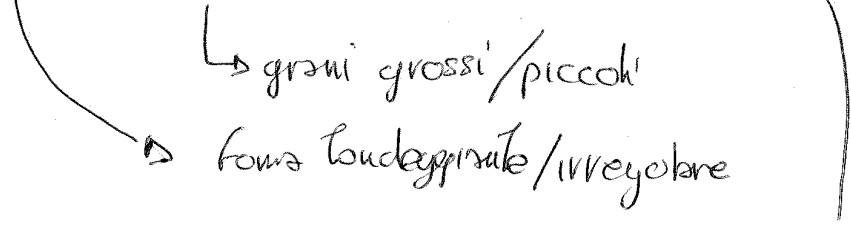 grani grossi/piccoli
forma tondeggiante/irregolare